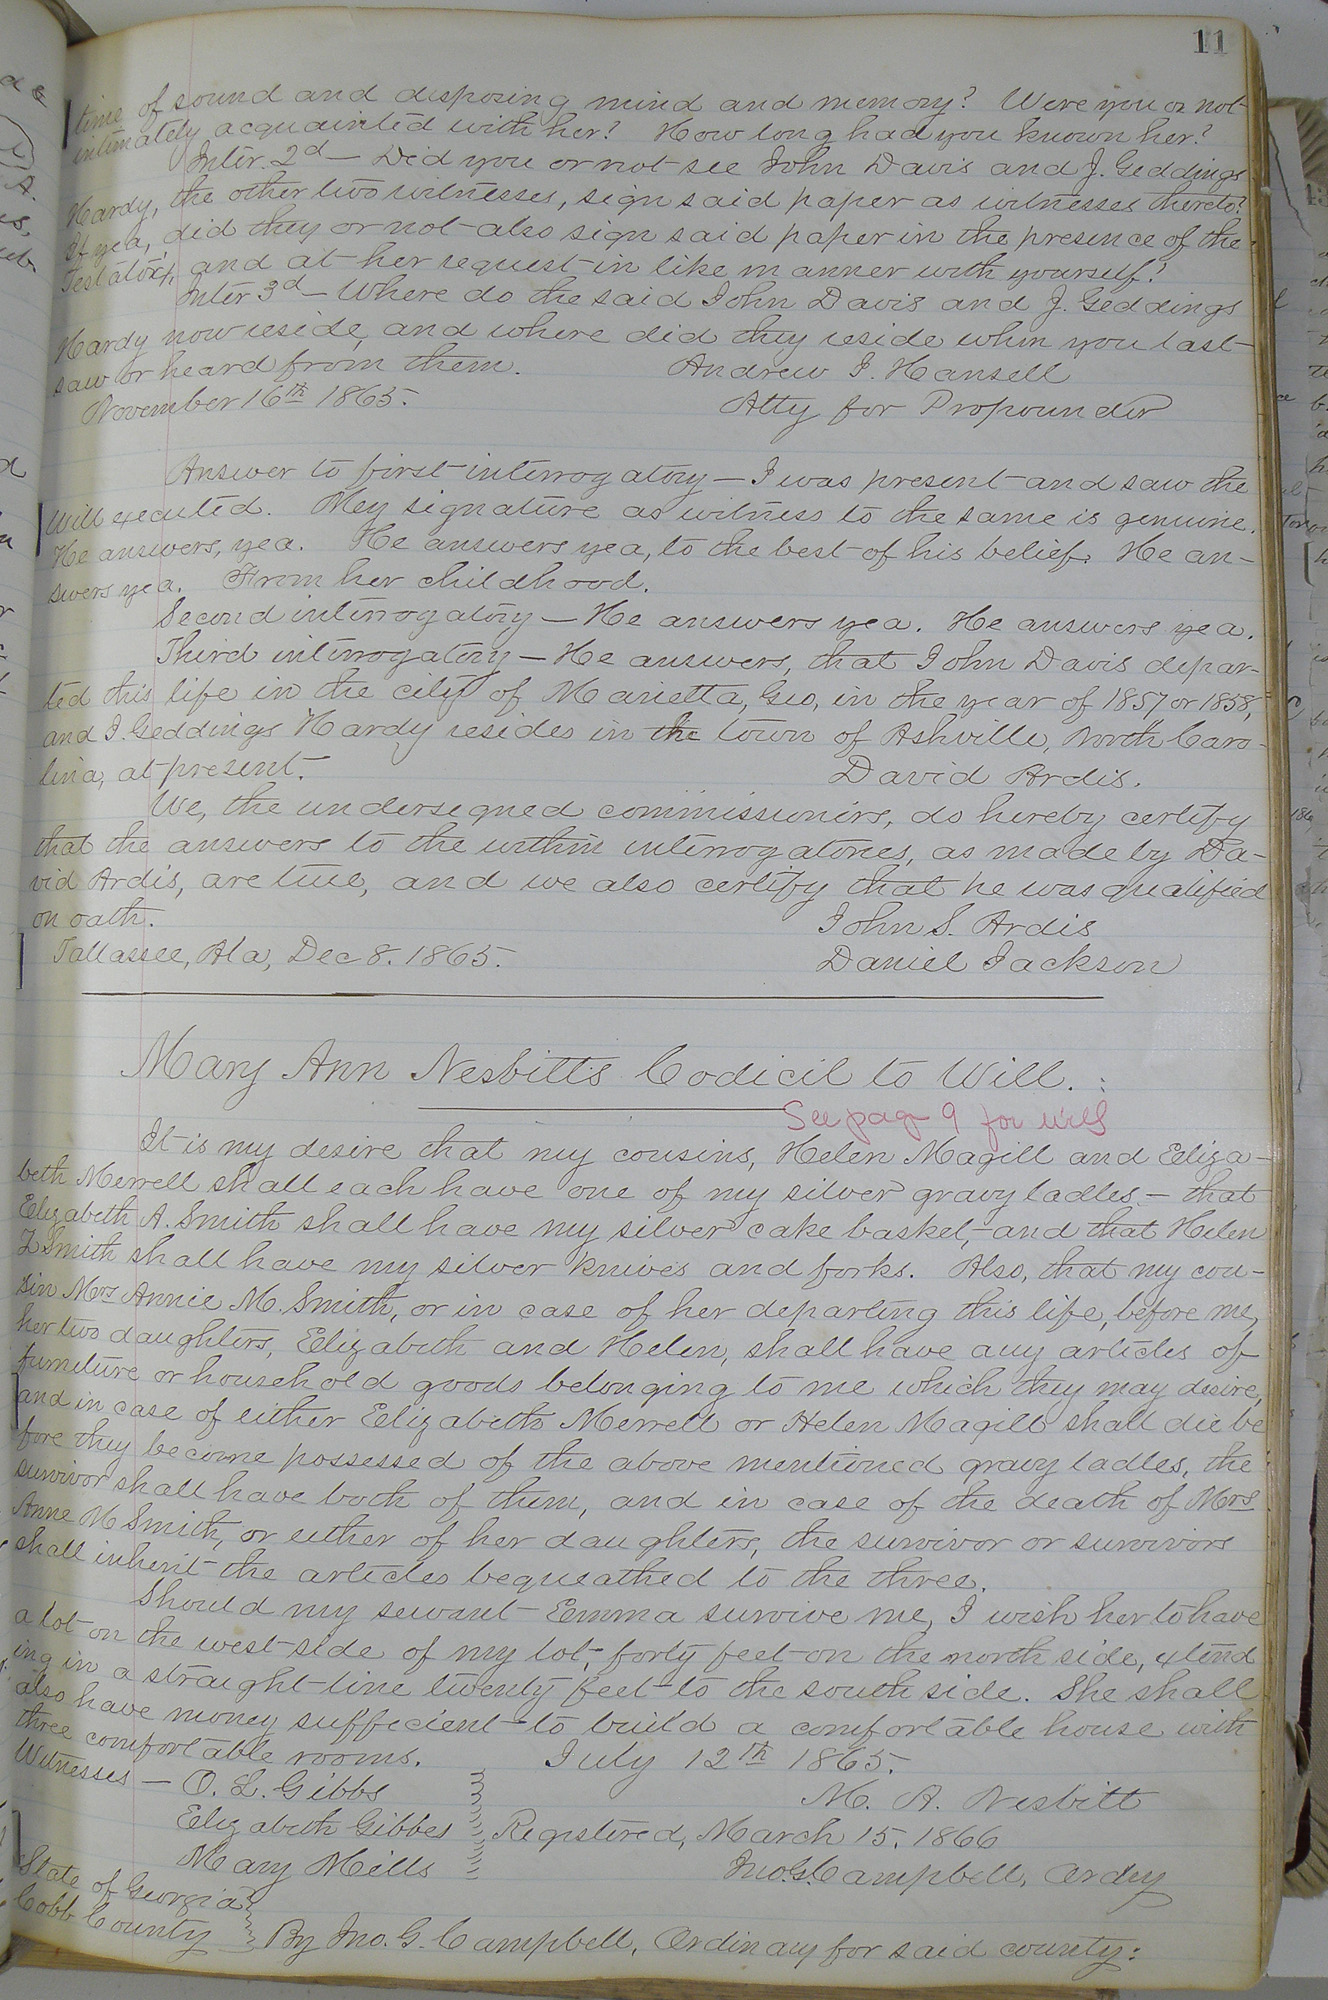 11
time of sound and disposing mind and memory? Were you or not
intimately acquainted with her? How long had you known her?
Inter. 2d — Did you or not see John Davis and J. Geddings
Hardy, the other two witnesses, sign said paper as witnesses thereto?
If yea, did they or not also sign said paper in the presence of the
Testatrix, and at her request in like manner with yourself?
Inter 3d — Where do the said John Davis and J. Geddings
Hardy now reside, and where did they reside when you last
saw or heard from them. Andrew J. Hansell
November 16th 1865. Atty for Propounder
Answer to first interrogatory — I was present and saw the
Will executed. My signature as witness to the same is genuine.
He answers, yea. He answers yea, to the best of his belief. He an-
swers yea. From her childhood.
Second interrogatory — He answers yea. He answers yea.
Third interrogatory — He answers, that John Davis depar-
ted this life in the city of Marietta, Geo, in the year of 1857 or 1858,
and J. Geddings Hardy resides in the town of Ashville, North Caro-
lina, at present. David Ardis.
We, the undersigned commissioners, do hereby certify
that the answers to the within interrogatories, as made by Da-
vid Ardis, are true, and we also certify that he was qualified
on oath. John S. Ardis
Tallassee, Ala, Dec 8. 1865. Daniel Jackson
Mary Ann Nesbitt's Codicil to Will.
See page 9 for will
It is my desire that my cousins, Helen Magill and Eliza-
beth Merrell shall each have one of my silver gravy ladles — that
Elizabeth A. Smith shall have my silver cake basket, — and that Helen
Z Smith shall have my silver knives and forks. Also, that my cou-
sin Mrs Annie M. Smith, or in case of her departing this life, before me,
her two daughters, Elizabeth and Helen, shall have any articles of
furniture or household goods belonging to me which they may desire,
and in case of either Elizabeth Merrell or Helen Magill shall die be
fore they become possessed of the above mentioned gravy ladles, the
survivor shall have both of them, and in case of the death of Mrs
Anne M Smith, or either of her daughters, the survivor or survivors
shall inherit the articles bequeathed to the three.
Should my servant Emma survive me, I wish her to have
a lot on the west side of my lot, forty feet on the north side, extend
ing in a straight line twenty feet to the south side. She shall
also have money sufficient to build a comfortable house with
three comfortable rooms. July 12th 1865.
Witnesses — O. L. Gibbs M. A. Nesbitt
Elizabeth Gibbes Registered, March 15. 1866
Mary Mills Jno. G. Campbell, Ordry
State of Georgia
Cobb County By Jno. G. Campbell, Ordinary for said county: